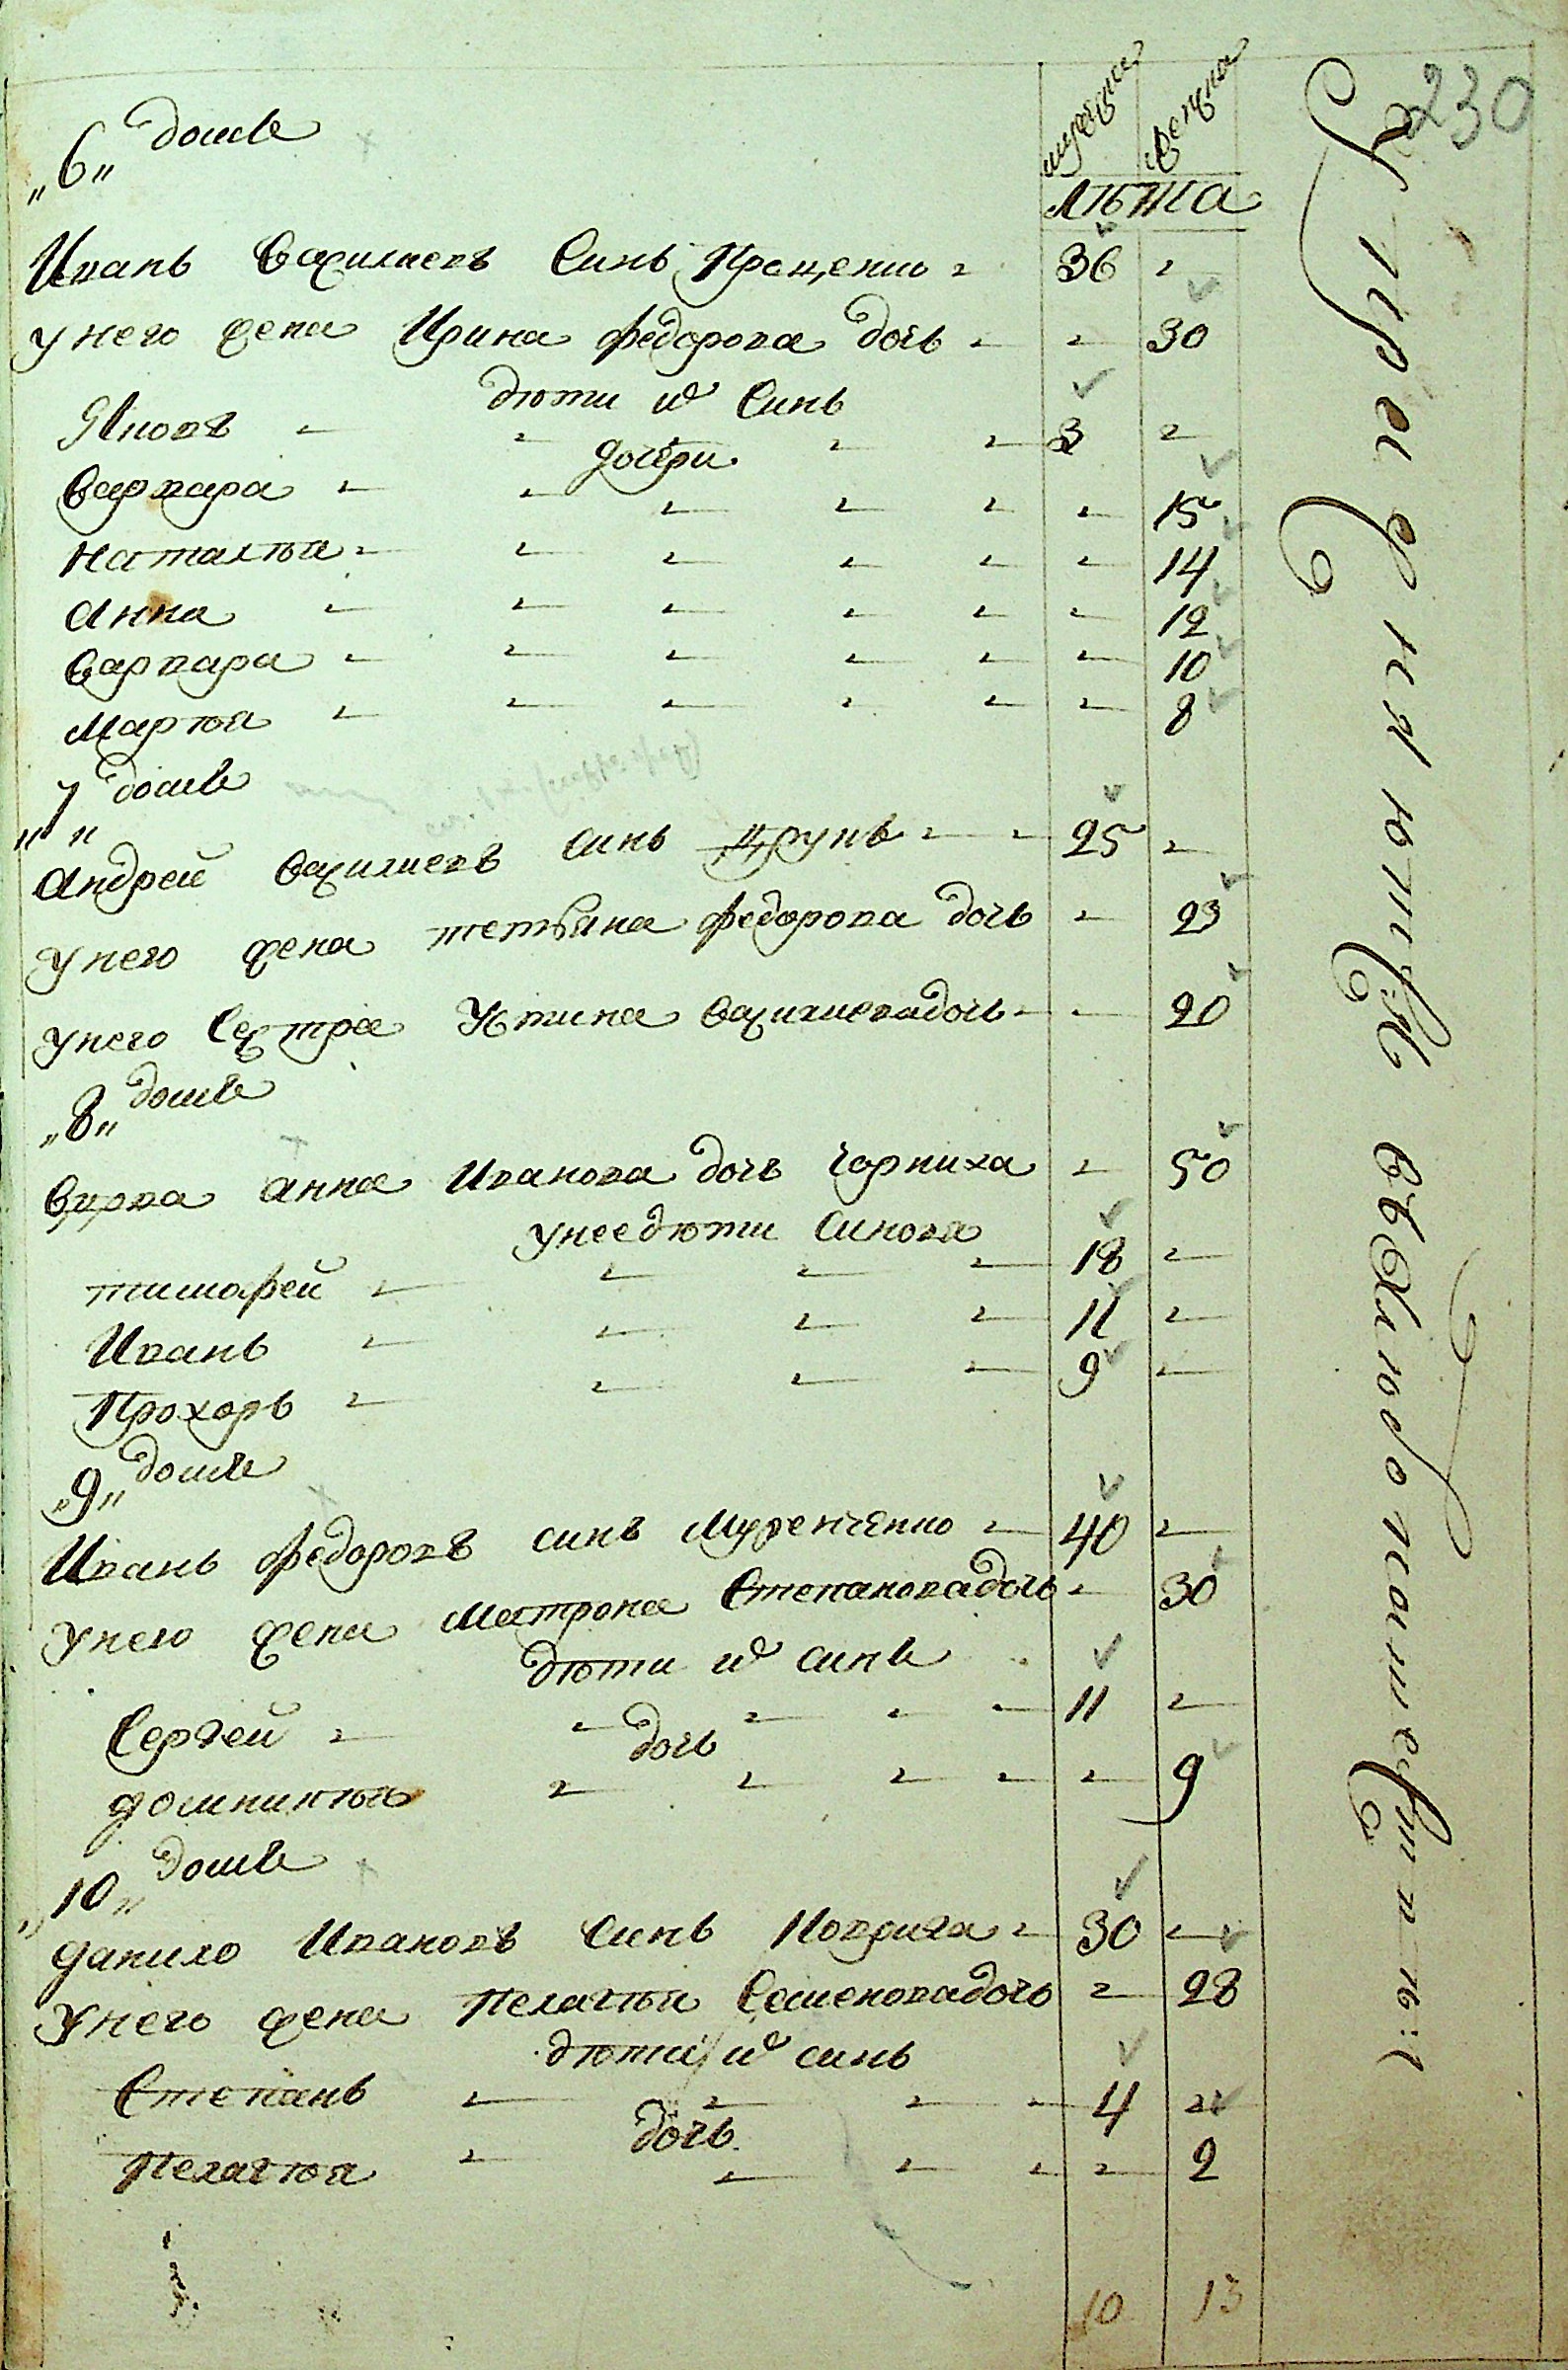 230
мужеска женска
лѣта
„6„ домѣ
Иванъ Василиевъ Синъ Проценко 36
у него жена Ирина федорова дочь 30
дѣти их Синъ
Яковъ 3
дочери
Варвара 15
Наталѣя 14
Анна 12
Варвара 10
Марѣя 8
„7„ домѣ
Андрей Василиевъ Синъ 25
у него жена тетьяна федорова дочь 23
у него Сестра Устина Василиева дочь 20
„8„ домѣ
Вдова Анна Иванова дочь Чорниха 50
у нее дѣти Синовя
тимофей 18
Иванъ 11
Прохоръ 9
„9„ домѣ
Иванъ федоровъ синъ Муренченко 40
у него жена Матрона Степанова дочь 30
дѣти их синъ
Сергей 11
дочь
домникѣя 9
„10„ домѣ
данило Ивановъ Синъ Коврига 30
У него жена Пелагѣя Семенова дочь 28
дѣти их синъ
Степанъ 4
дочь
Пелагѣя 2
10 13